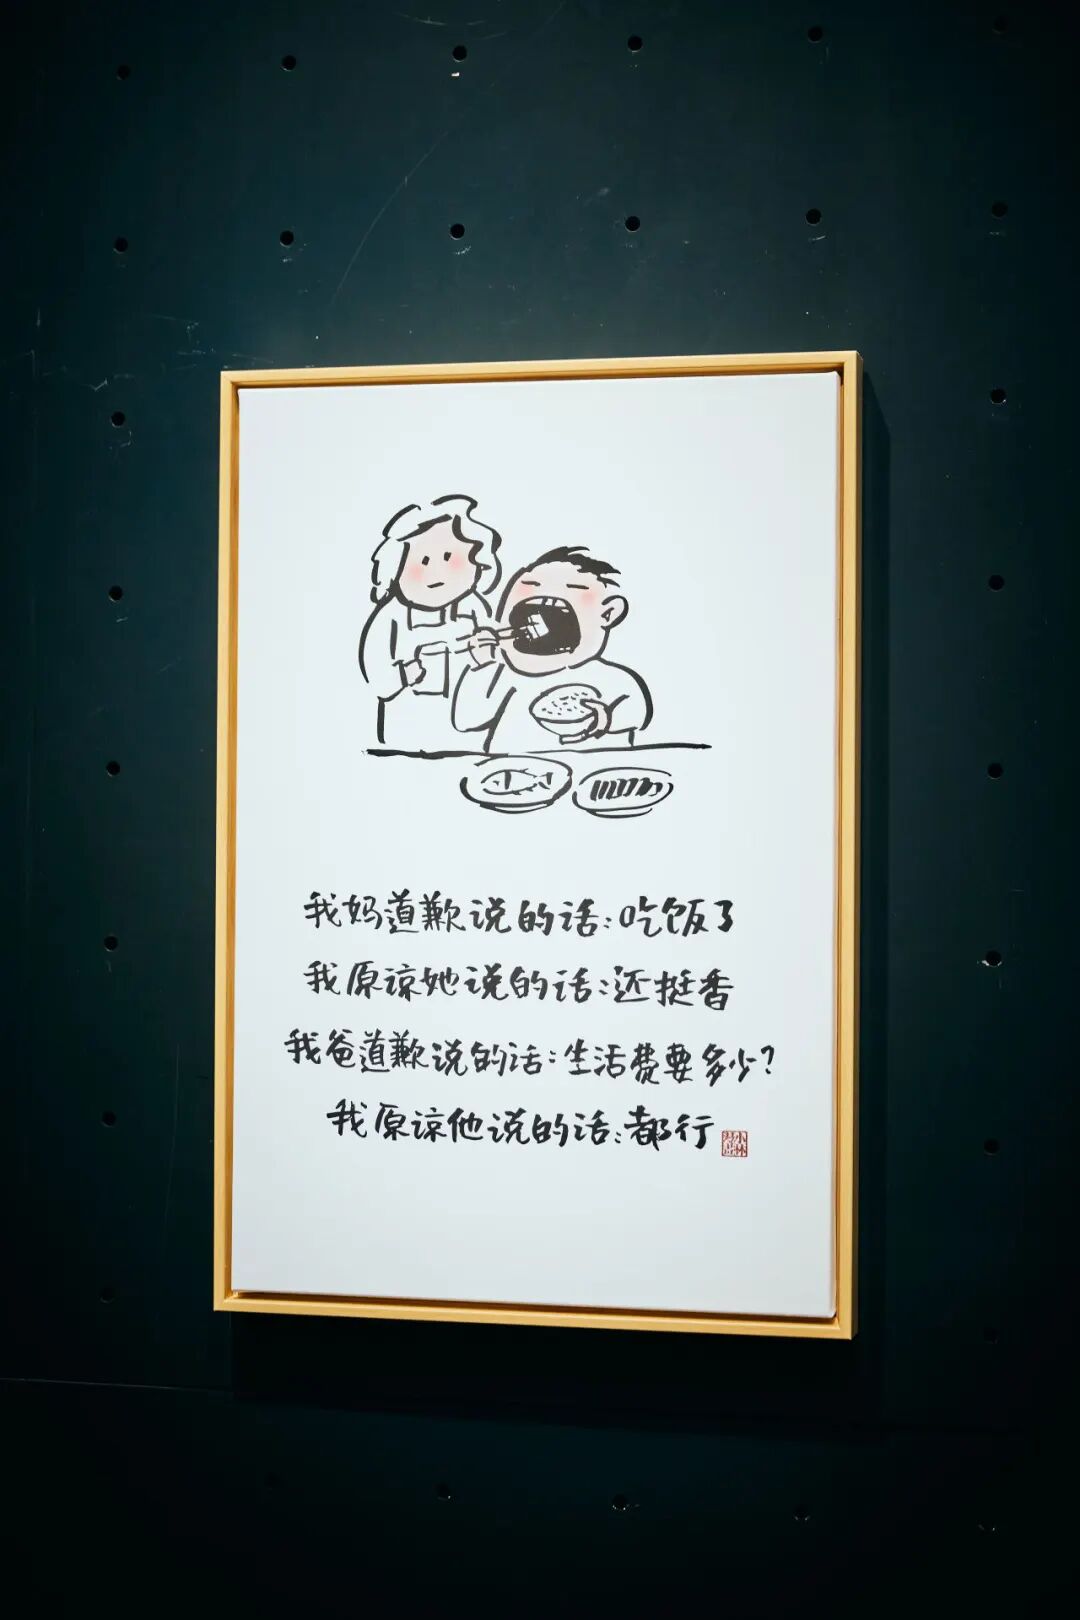 我妈道歉说的话:吃饭了
我原谅她说的话:还挺香
我爸道歉说的话:生活费要多少?
我原谅他说的话:都行